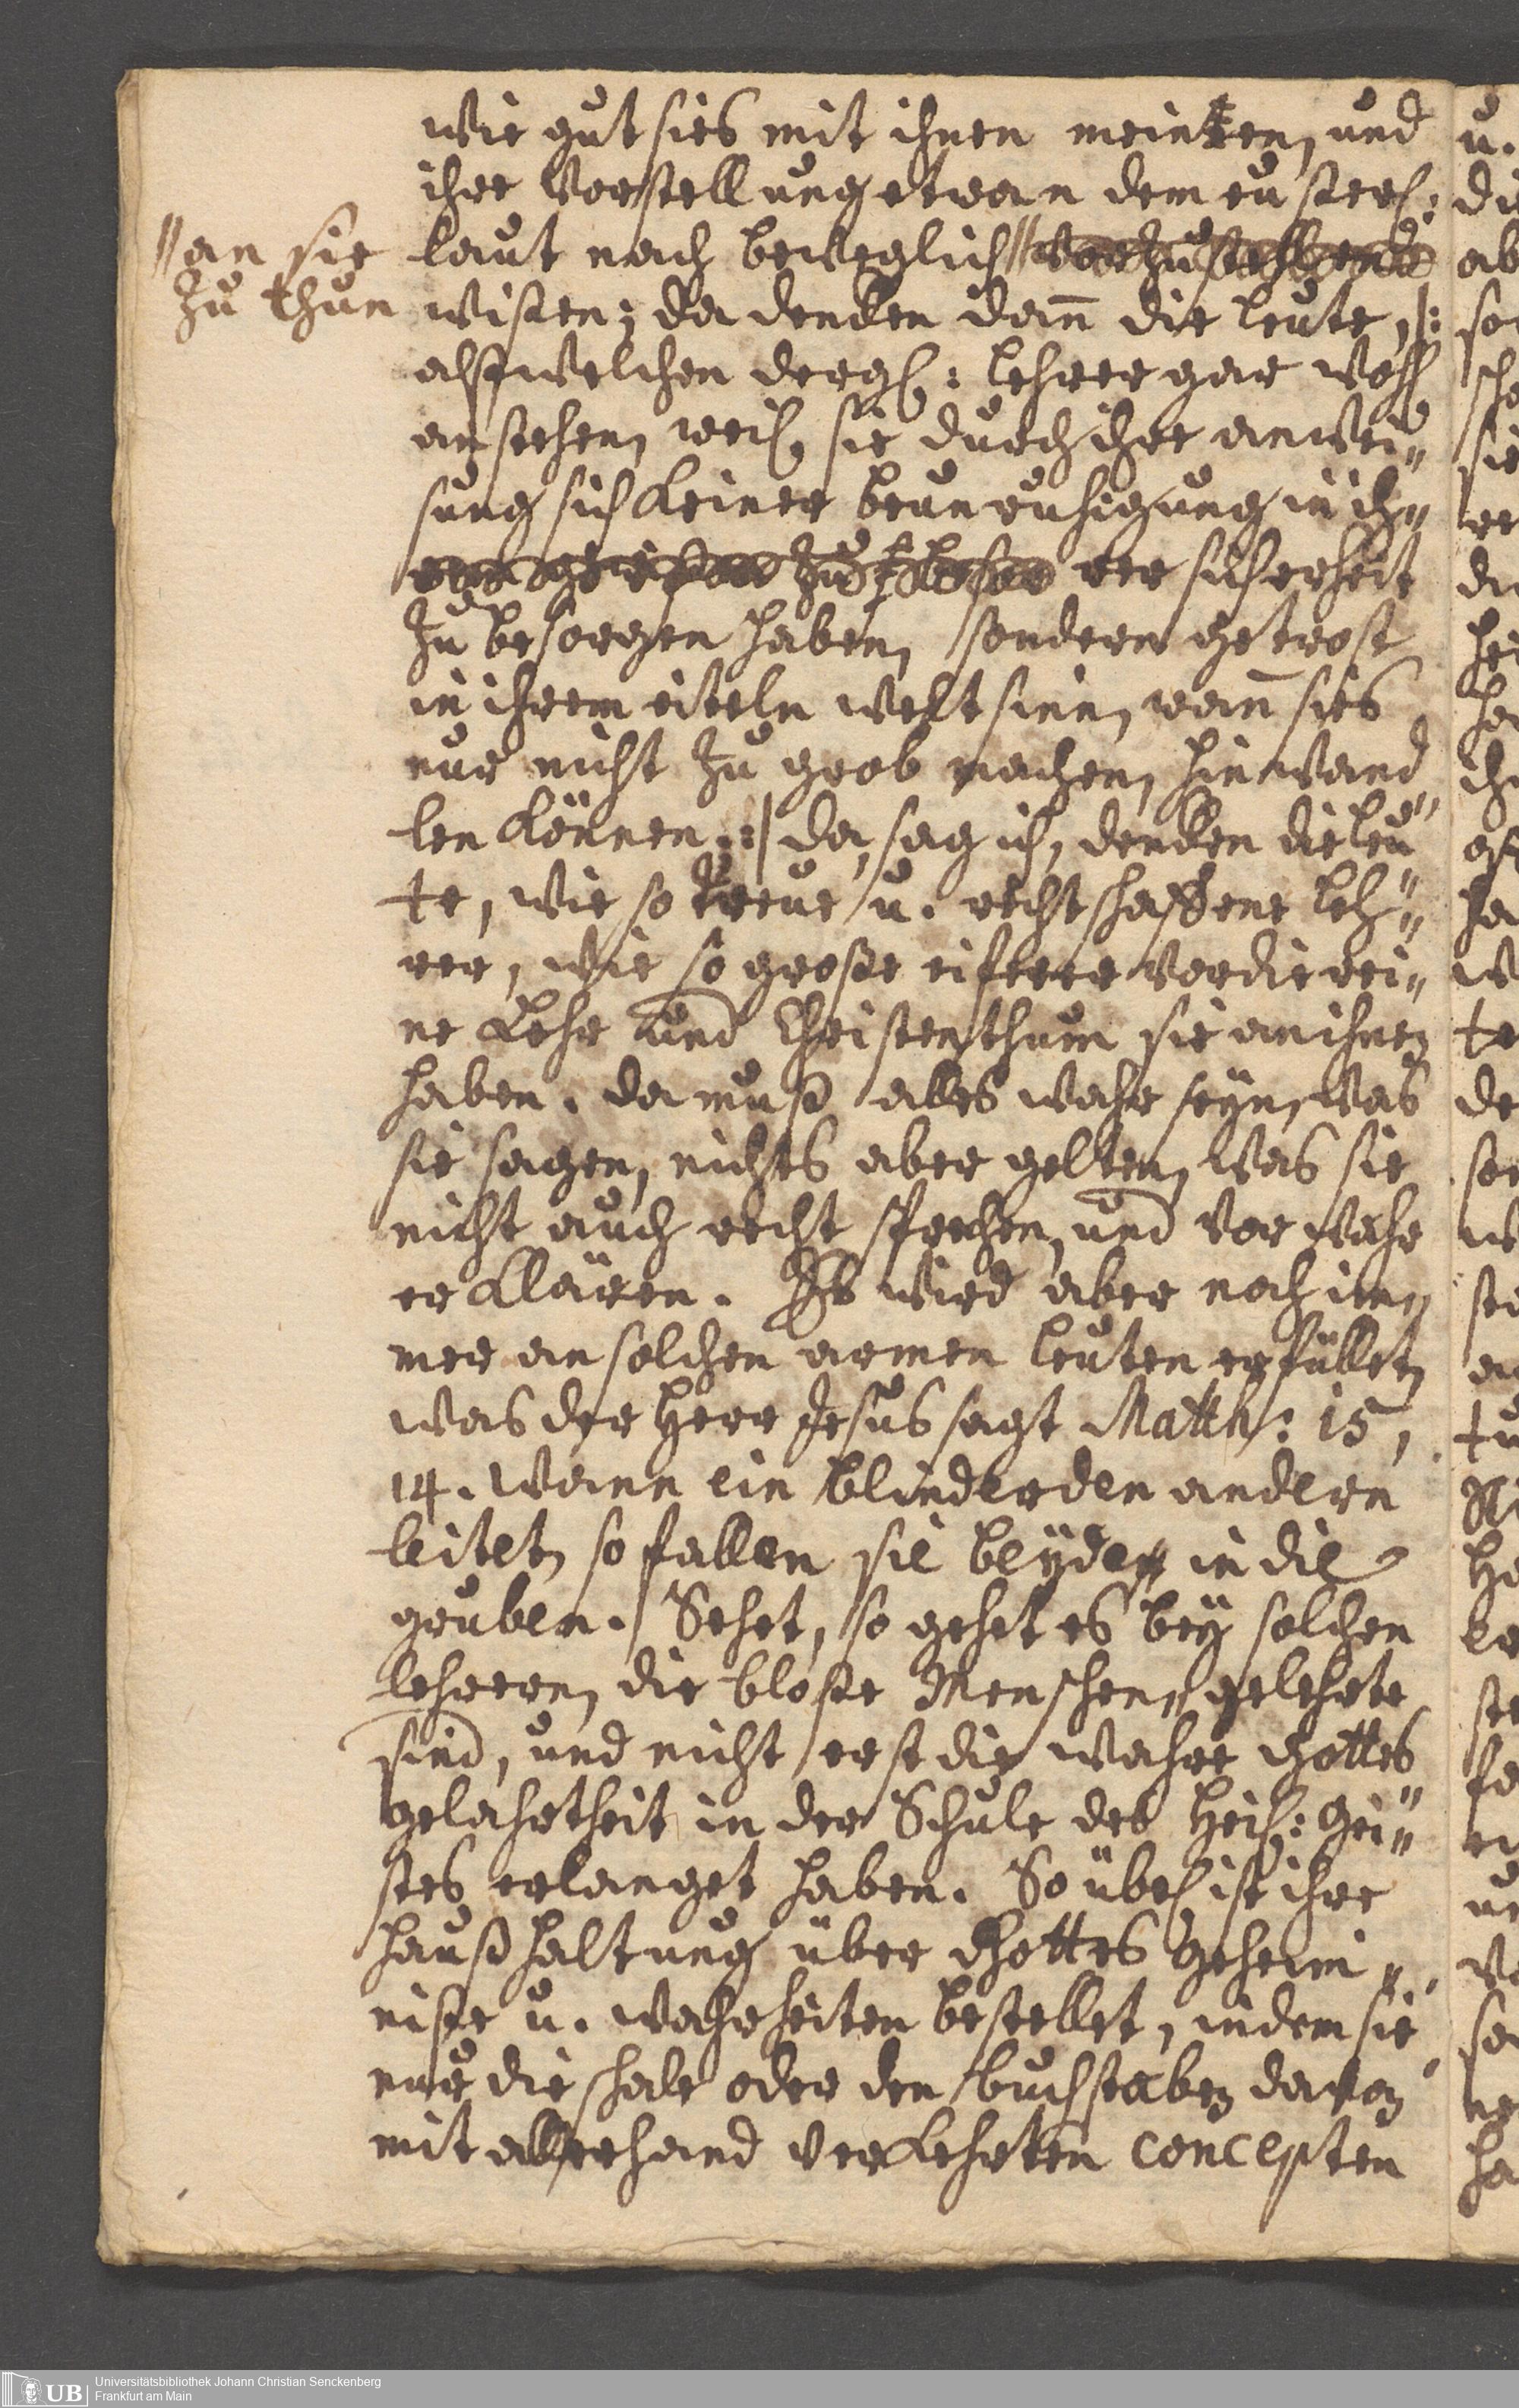 wie gut sies mit ihnen meinten, und
ihre Vorstellung etwan dem euserl:
//an sie
zu thun
laut nach beweglich //vorzustellend
wisten; da dencken dann die leute, /:
alß welchen dergl: lehrer gar wohl
anstehen, weil sie durch ihre anwei„
sung sich keiner beunruhigung in ih„
rer sicherheit
zu besorgen haben, sondern getrost
in ihrem eiteln weltsinn, wann sies
nur nicht zu grob machen, hinwand„
len können :/ da, sag ich, dencken die leu„
te, wie so treue u. rechtschaffene leh„
rer, wie so große eifferer vor die rei„
ne Lehr und Christenthum sie an ihnen
haben. da muß alles wahr seyn, was
sie sagen, nichts aber gelten, was sie
nicht auch recht sprechen, und vor wahr
erklären. Es wird aber noch im„
mer an solchen armen leuten erfüllet,
was der Herr Jesus sagt Matth: 15,
14. Wann ein blinder den andern
leitet, so fallen sie beyde in die
gruben. Sehet, so gehet es bey solchen
lehrern, die bloße Menschen„gelehrte
sind, und nicht erst die wahre Gottes
gelahrtheit in der Schule des Heil: Gei„
stes erlanget haben. So übel ist ihre
haußhaltung über Gottes Geheim„
niße u. wahrheiten bestellet, indem sie
nur die schale oder den buchstaben davon
mit allerhand verkehrten concepten
Universitätsbibliothek Johann Christian Senckenberg
Frankfurt am Main
UB